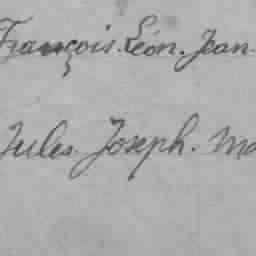 François. Léon. Jean-
Jules. Joseph. Ma